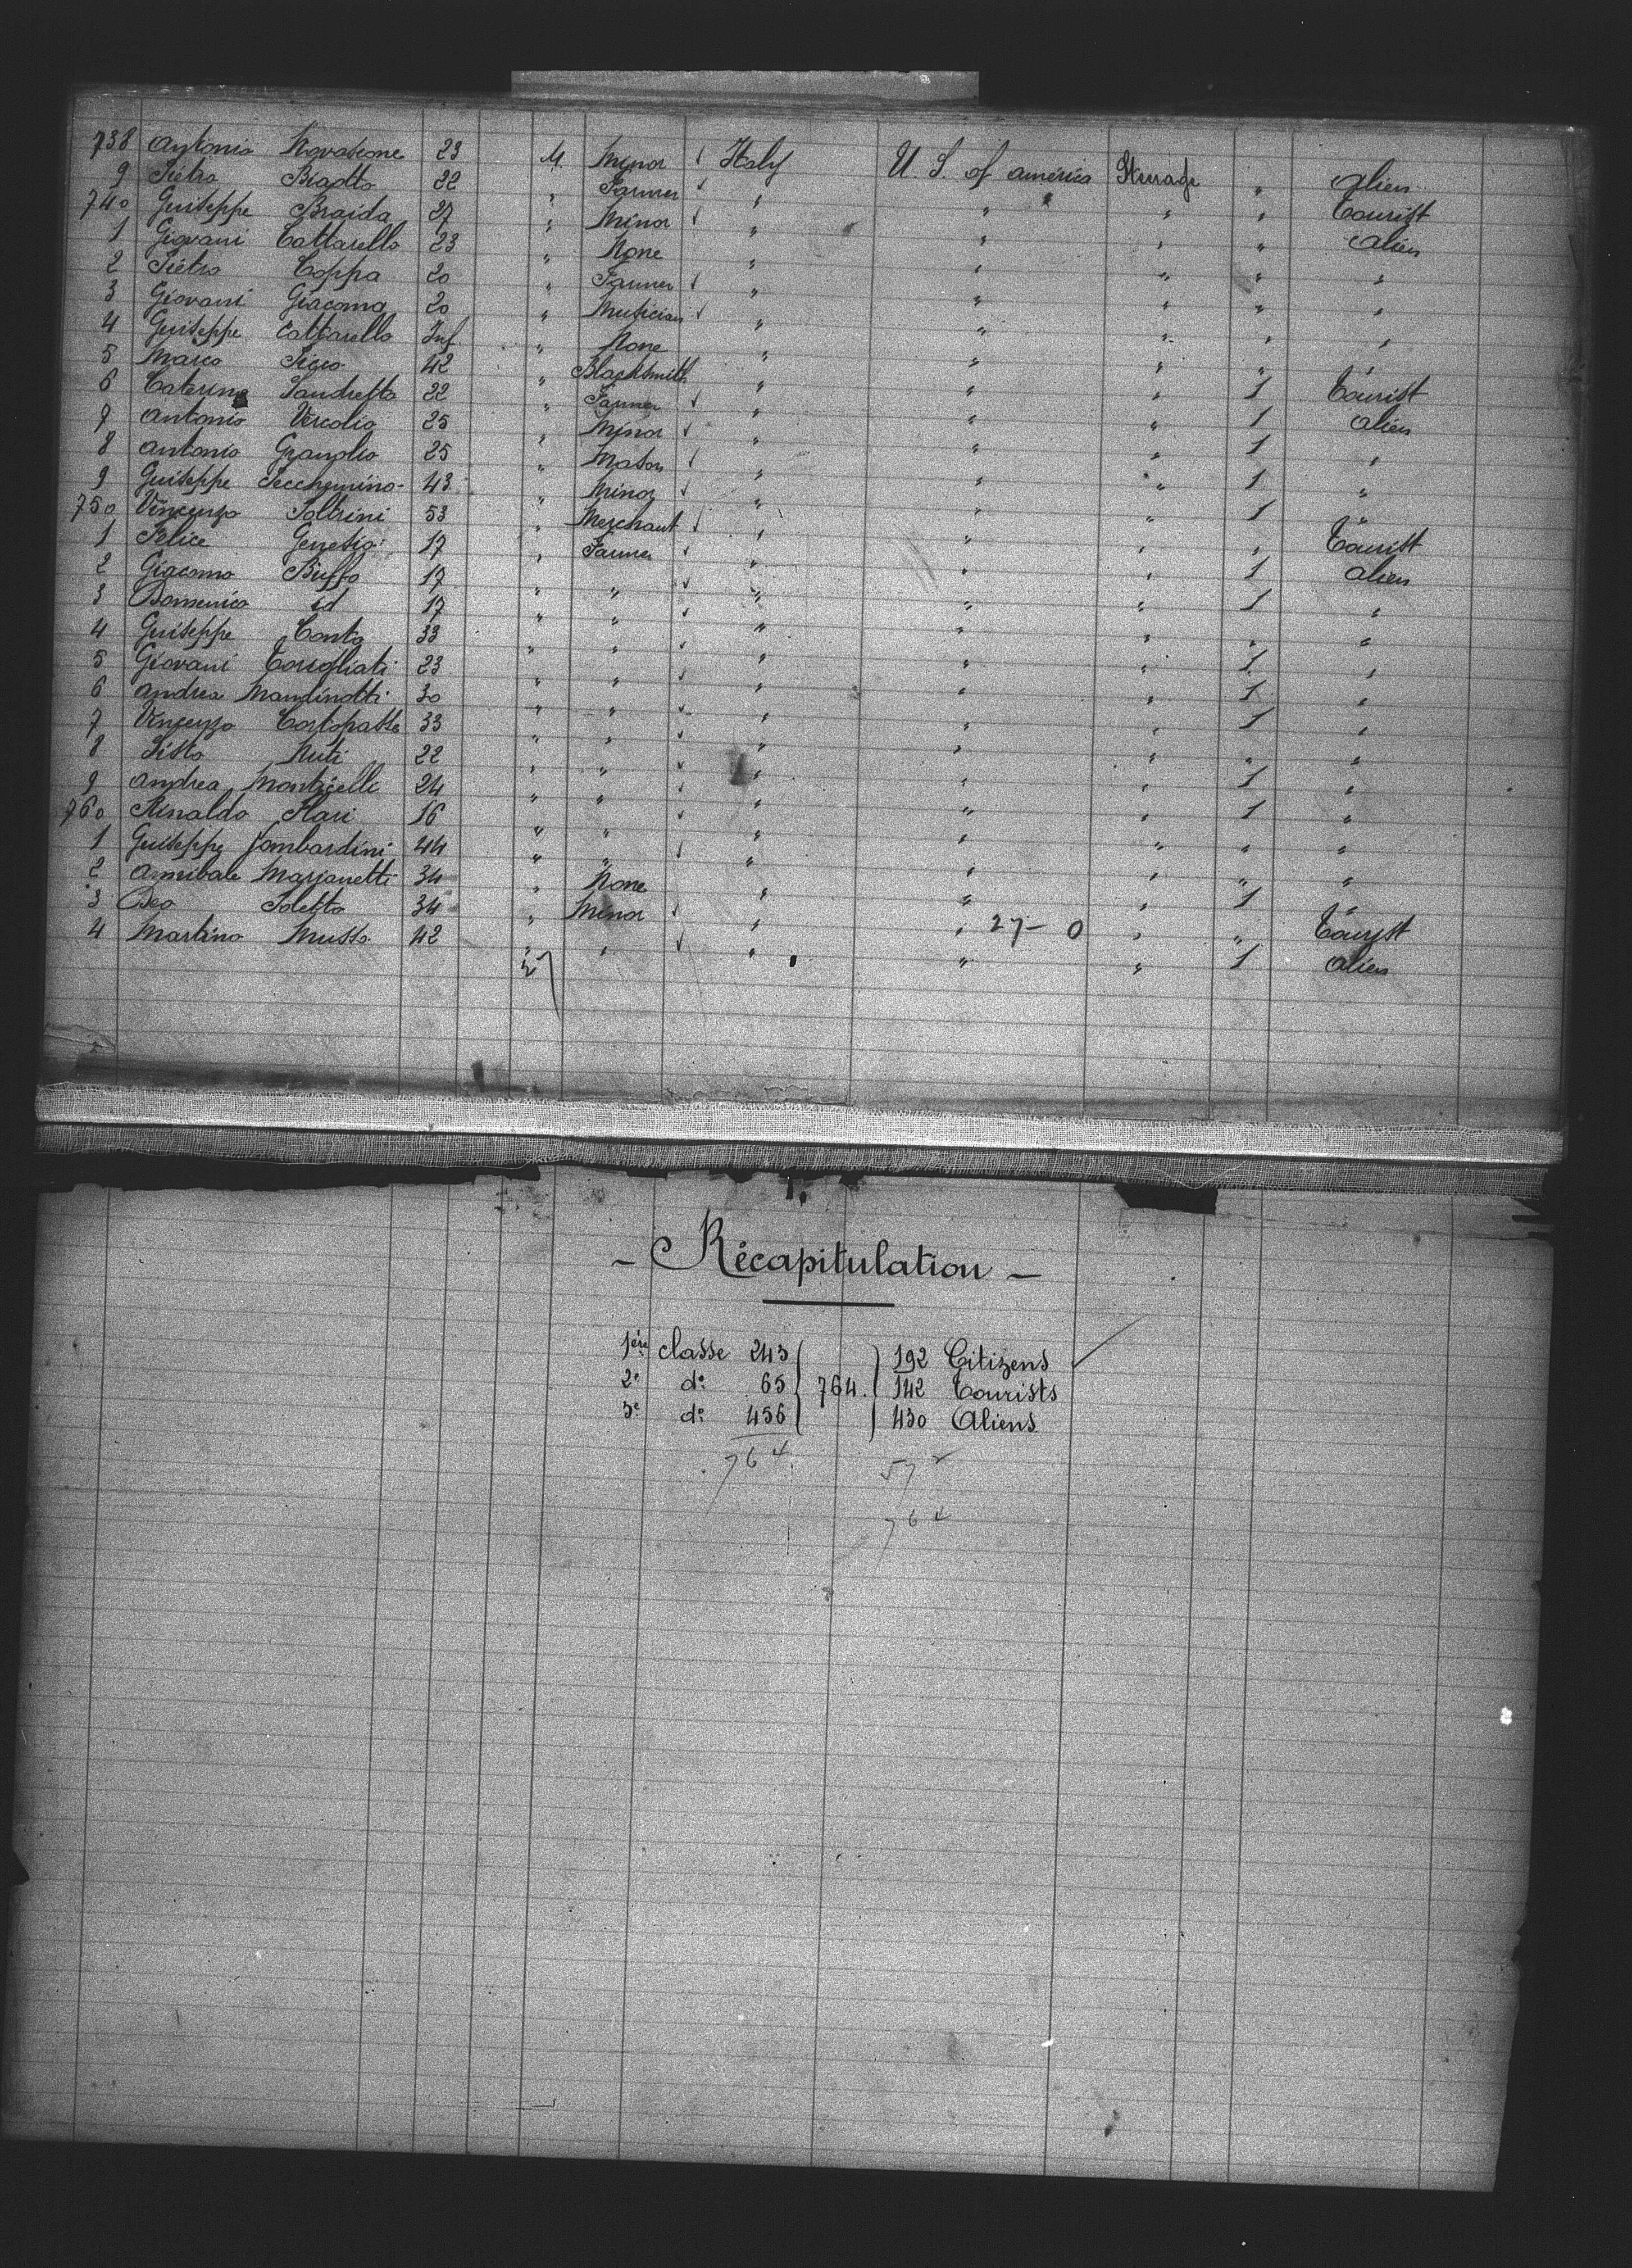 738 Antonio Novascone 23 M. Minor ✓ Italy U. S. of america Steerage " Alien
9 Pietro Biadto 22 " Farmer ✓ " " " " Tourist
740 Guiseppe Braida 27 " Minor ✓ " " " " Alien
1 Giovani Cattarello 23 " None " " " " "
2 Pietro Coppa 20 " Farmer ✓ " " " " "
3 Giovani Giacoma 20 " Musician ✓ " " " " "
4 Guiseppe Cattarello Inf. " None " " " " "
5 Marco 42 " Blacksmith " " " 1 Tourist
6 Caterina Sandretto 22 " Farmer ✓ " " " 1 Alien
7 Antonio Vercolio 25 " Minor ✓ " " " 1 "
8 Antonio Granolio 25 " Mason ✓ " " " 1 "
9 Guiseppe Secchemino 43 " Minor ✓ " " " 1 "
750 Vincenzo Poltrini 53 " Merchant ✓ " " " " Tourist
1 Felice Genesio 17 " Farmer ✓ " " " 1 Alien
2 Giacomo Buffo 17 " " ✓ " " " 1 "
3 Domenico id 17 " " ✓ " " " " "
4 Guiseppe Conta 33 " " ✓ " " " 1 "
5 Giovani Torigliati 23 " " ✓ " " " 1 "
6 Andrea Mandinotti 30 " " ✓ " " " 1 "
7 Vincenzo Cortopasse 33 " " ✓ " " " " "
8 Sisto Nuti 22 " " ✓ " " " 1 "
9 Andrea Monticelli 24 " " ✓ " " " 1 "
760 Rinaldo Ilari 16 " " ✓ " " " " "
1 Guiseppe Lombardini 44 " " ✓ " " " " "
2 Annibale Marjanetti 34 " None " " " 1 "
3 Deo Poletto 34 " Minor ✓ " " 27 - 0 " " Tourist
4 Martino Musso 42 " " ✓ " " " 1 Alien
27
- Récapitulation -
1ère classe 243 192 Citizens
2e do 65 764. 142 Tourists
3e do 456 430 Aliens
764 572
764